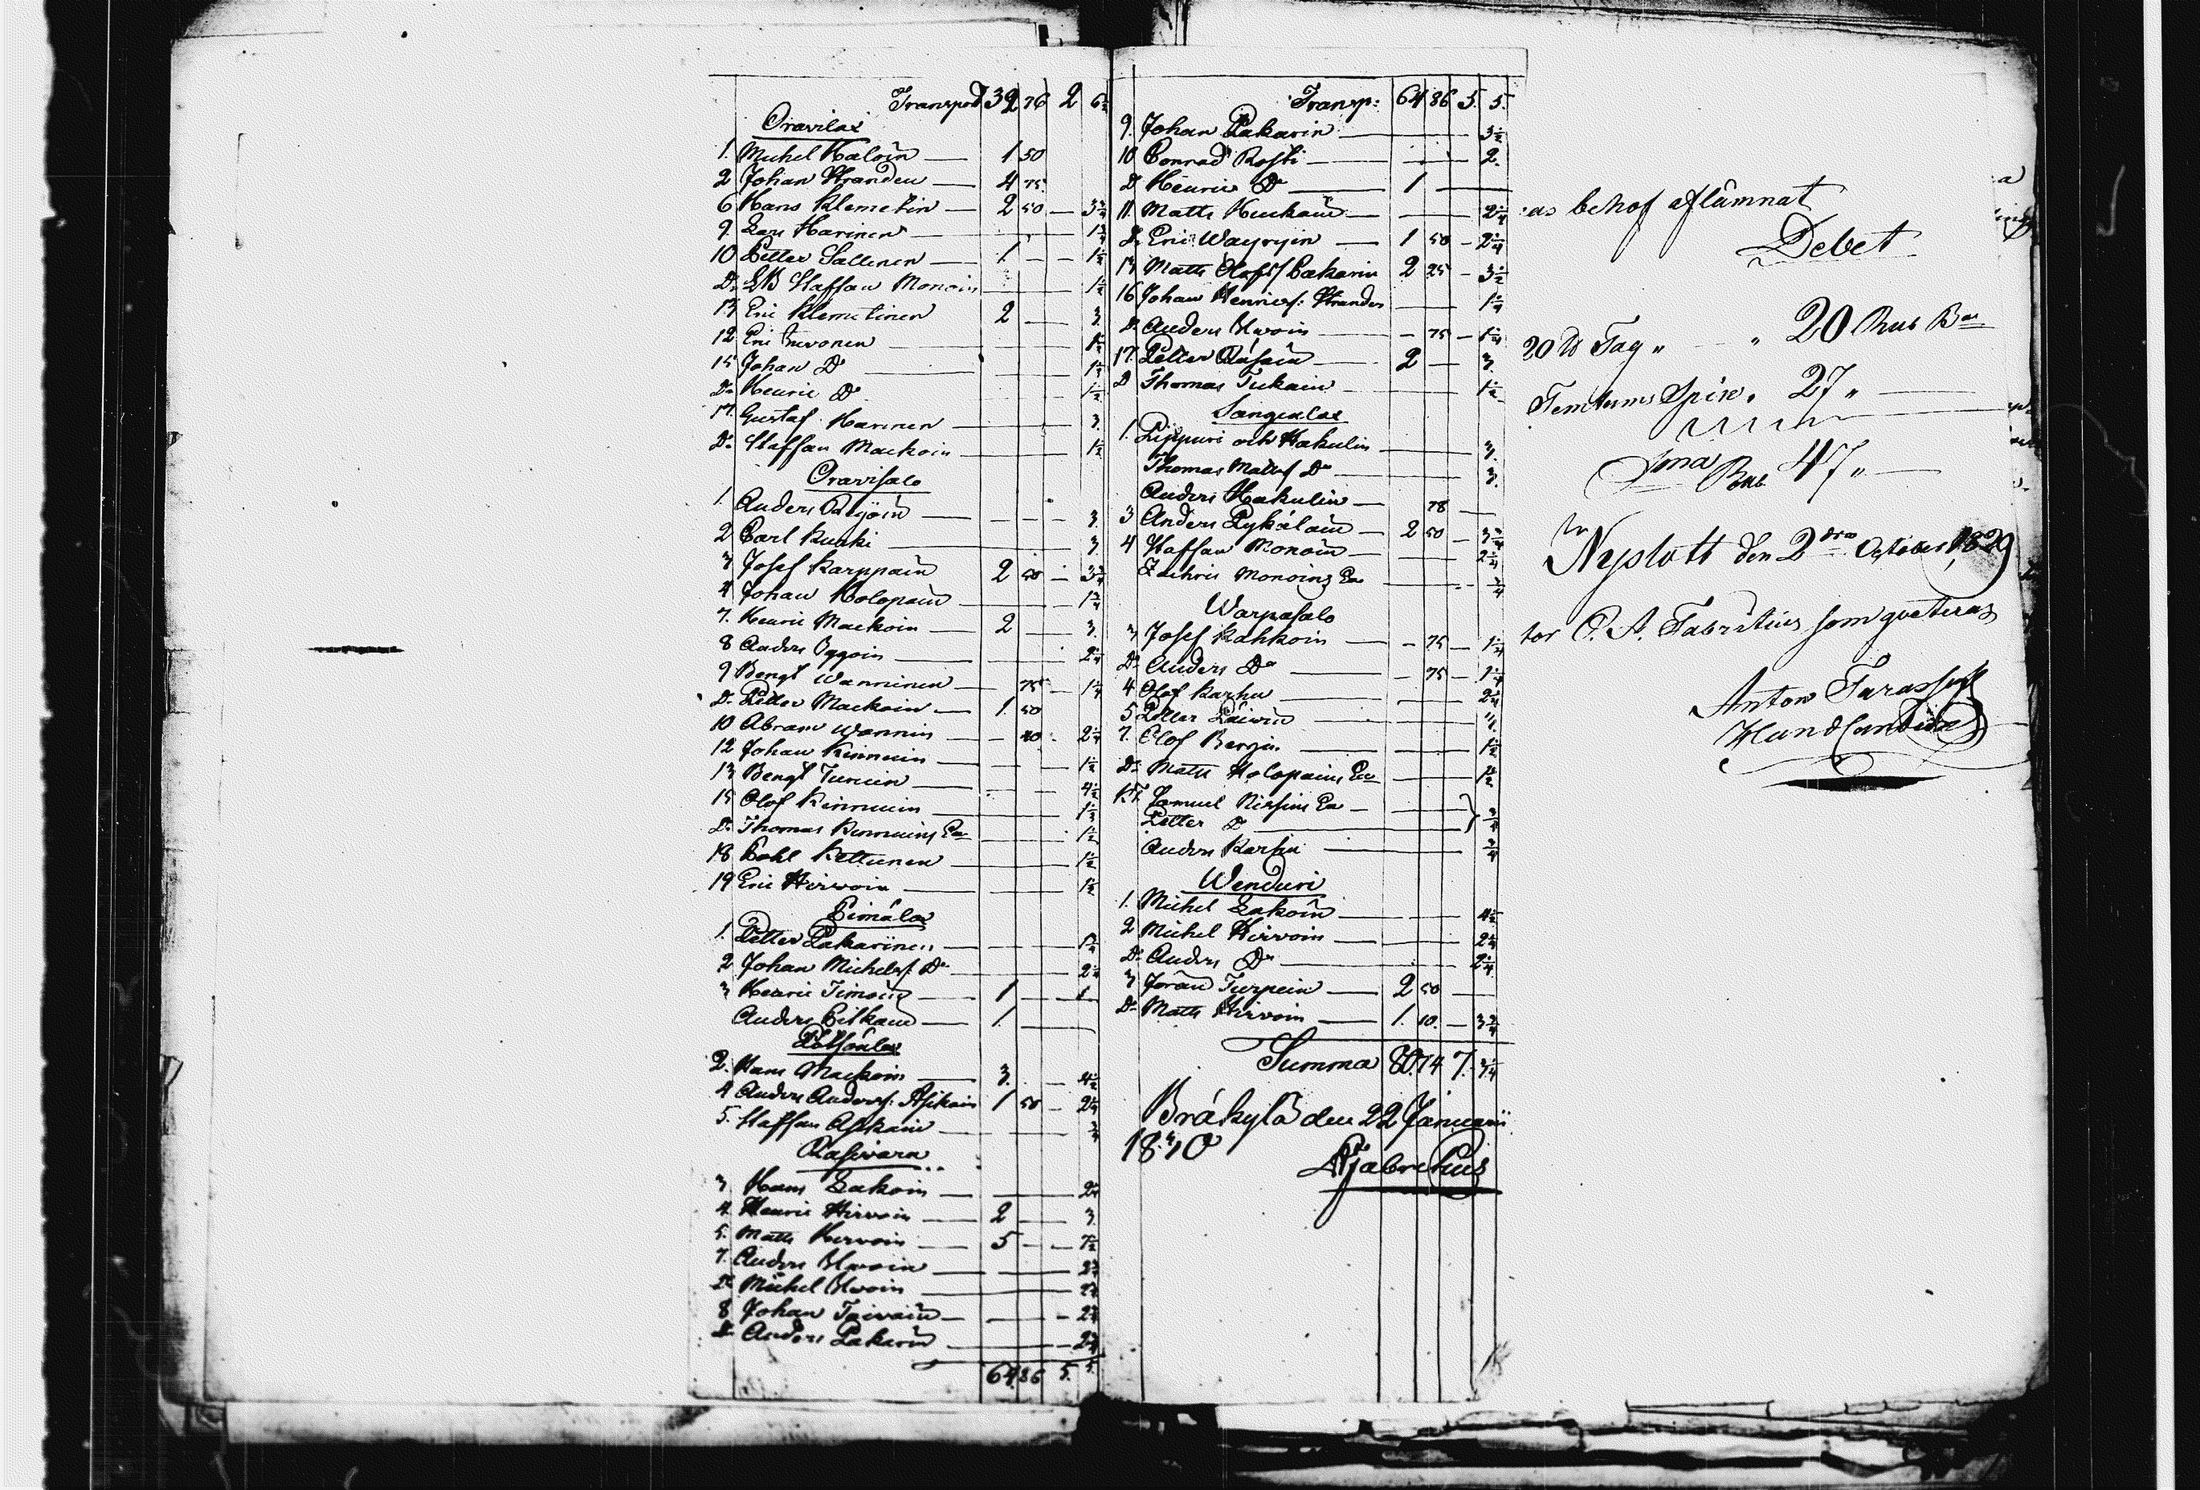 Transport 32 76 2 6½
Oravilax
1. Michel Haloin — 1 50
2 Johan Stranden — 4 75
6 Hans Klemetin — 2 50 — 3¾
9. Lars Harinen — 1¾
10 Petter Sallinen — 1 — 1½
Do Staffan Monoin 1½
Eric Klemetinen 2 — 3.
12 Eric 1½
15 Johan Do — 1½
Do Henric Do 1½
17. Gustaf Harinen — 3.
Do Staffan Mackoin — 1½
Oravisalo
1. Anders — 3.
2 Carl Kurki — 3.
3 Josef Karppain 2 50 — 3¾
4 Johan Holopain — 1¾
7. Henric Mackoin — 2 — 3.
8 Anders Oggoin — 2¼
9 Bengt Wanninen — 75 — 1¼
Do Petter Mackoin — 1. 50
10 Abram Wannin — 40. 2¼
12 Johan Kinnuin — 1½
13 Bengt Turuin — 4½
15 Olof Kinnuin — 1½
Do Thomas Kinnuins Ea — 1½
18 Pohl Kettunen — 1½
19 Eric Hirvoin — 1½
Pimälax
1. Petter Pakarinen — 1¾
2 Johan Michelss. Do — 2¼
3 Henric Timoin — 1 —
Anders — 1. —
Pötsönlax
2. Hans Mackoin — 3. — 4½
4 Anders Anderss: Asikain 1 50 — 2¼
5. Staffan Asikain — ¾
Rasivara
3 Hans Lakoin — 2¼
4. Henric Hirvoin — 2 — 3
5. Matts Hirvoin — 5 — 7½
7. Anders — 2¼
Do Michel — 2¼
8 Johan Toivain — 2¼
Do Anders Pakarin — 2¼
64 86 5. 5.
Transp: 64 86 5. 5.
9. Johan Pakarin — 3½
10 Conrad Rosti — 2.
Do Henric Do — 1 —
11. Matts — 2¼
Do Eric Wäyryin — 1 50 — 2¼
13 Matts Olofss Pakarin 2 25 — 3½
16 Johan Henricss: Stranden — 1¼
Do Anders — 75 — 1¼
17. Petter Räsäin — 2 — 3.
Do Thomas Tukain — 1½
Sangenlax
1. Pippuri och Hakulin — 3.
Thomas Mattss Do — 3.
Anders Hakulin — 78 —
3 Anders Pykäläin — 2 50 — 3¾
4 Staffan Monoin — 2¼
Monoins Ea — ¾
Warpasalo
3 Josef Kahkoin — 75 — 1¼
Do Anders Do — 75 — 1¼
4 Olof Karhu — 2¼
5 Petter
7. Olof — 1½
Do Matts Holopains Ea — 1½
Samuel Ea —
Petter Do — } ¾
Anders — ¾
Wenduri
1. Michel Lakoin — 4½
2 Michel Hirvoin — 2¼
Do Anders Do — 2¼
3 Jöran Turpein — 2 50 —
Do Matts Hirvoin — 1. 10. — 3¾
Summa 80. 74 7. 3¼
Bräkylä den 22 Januarii
1830
Fabritius
behof aflämnat
Debet
20 ℔ Tag „ „ 20 Rub Bco
Femtums Spik „ 27 „ —
Sma Rub 47 „ —
Nyslott den 2dra October 1829
tor C. A. Fabritius, som qvitteras
Anton Tarassoff
Handlande